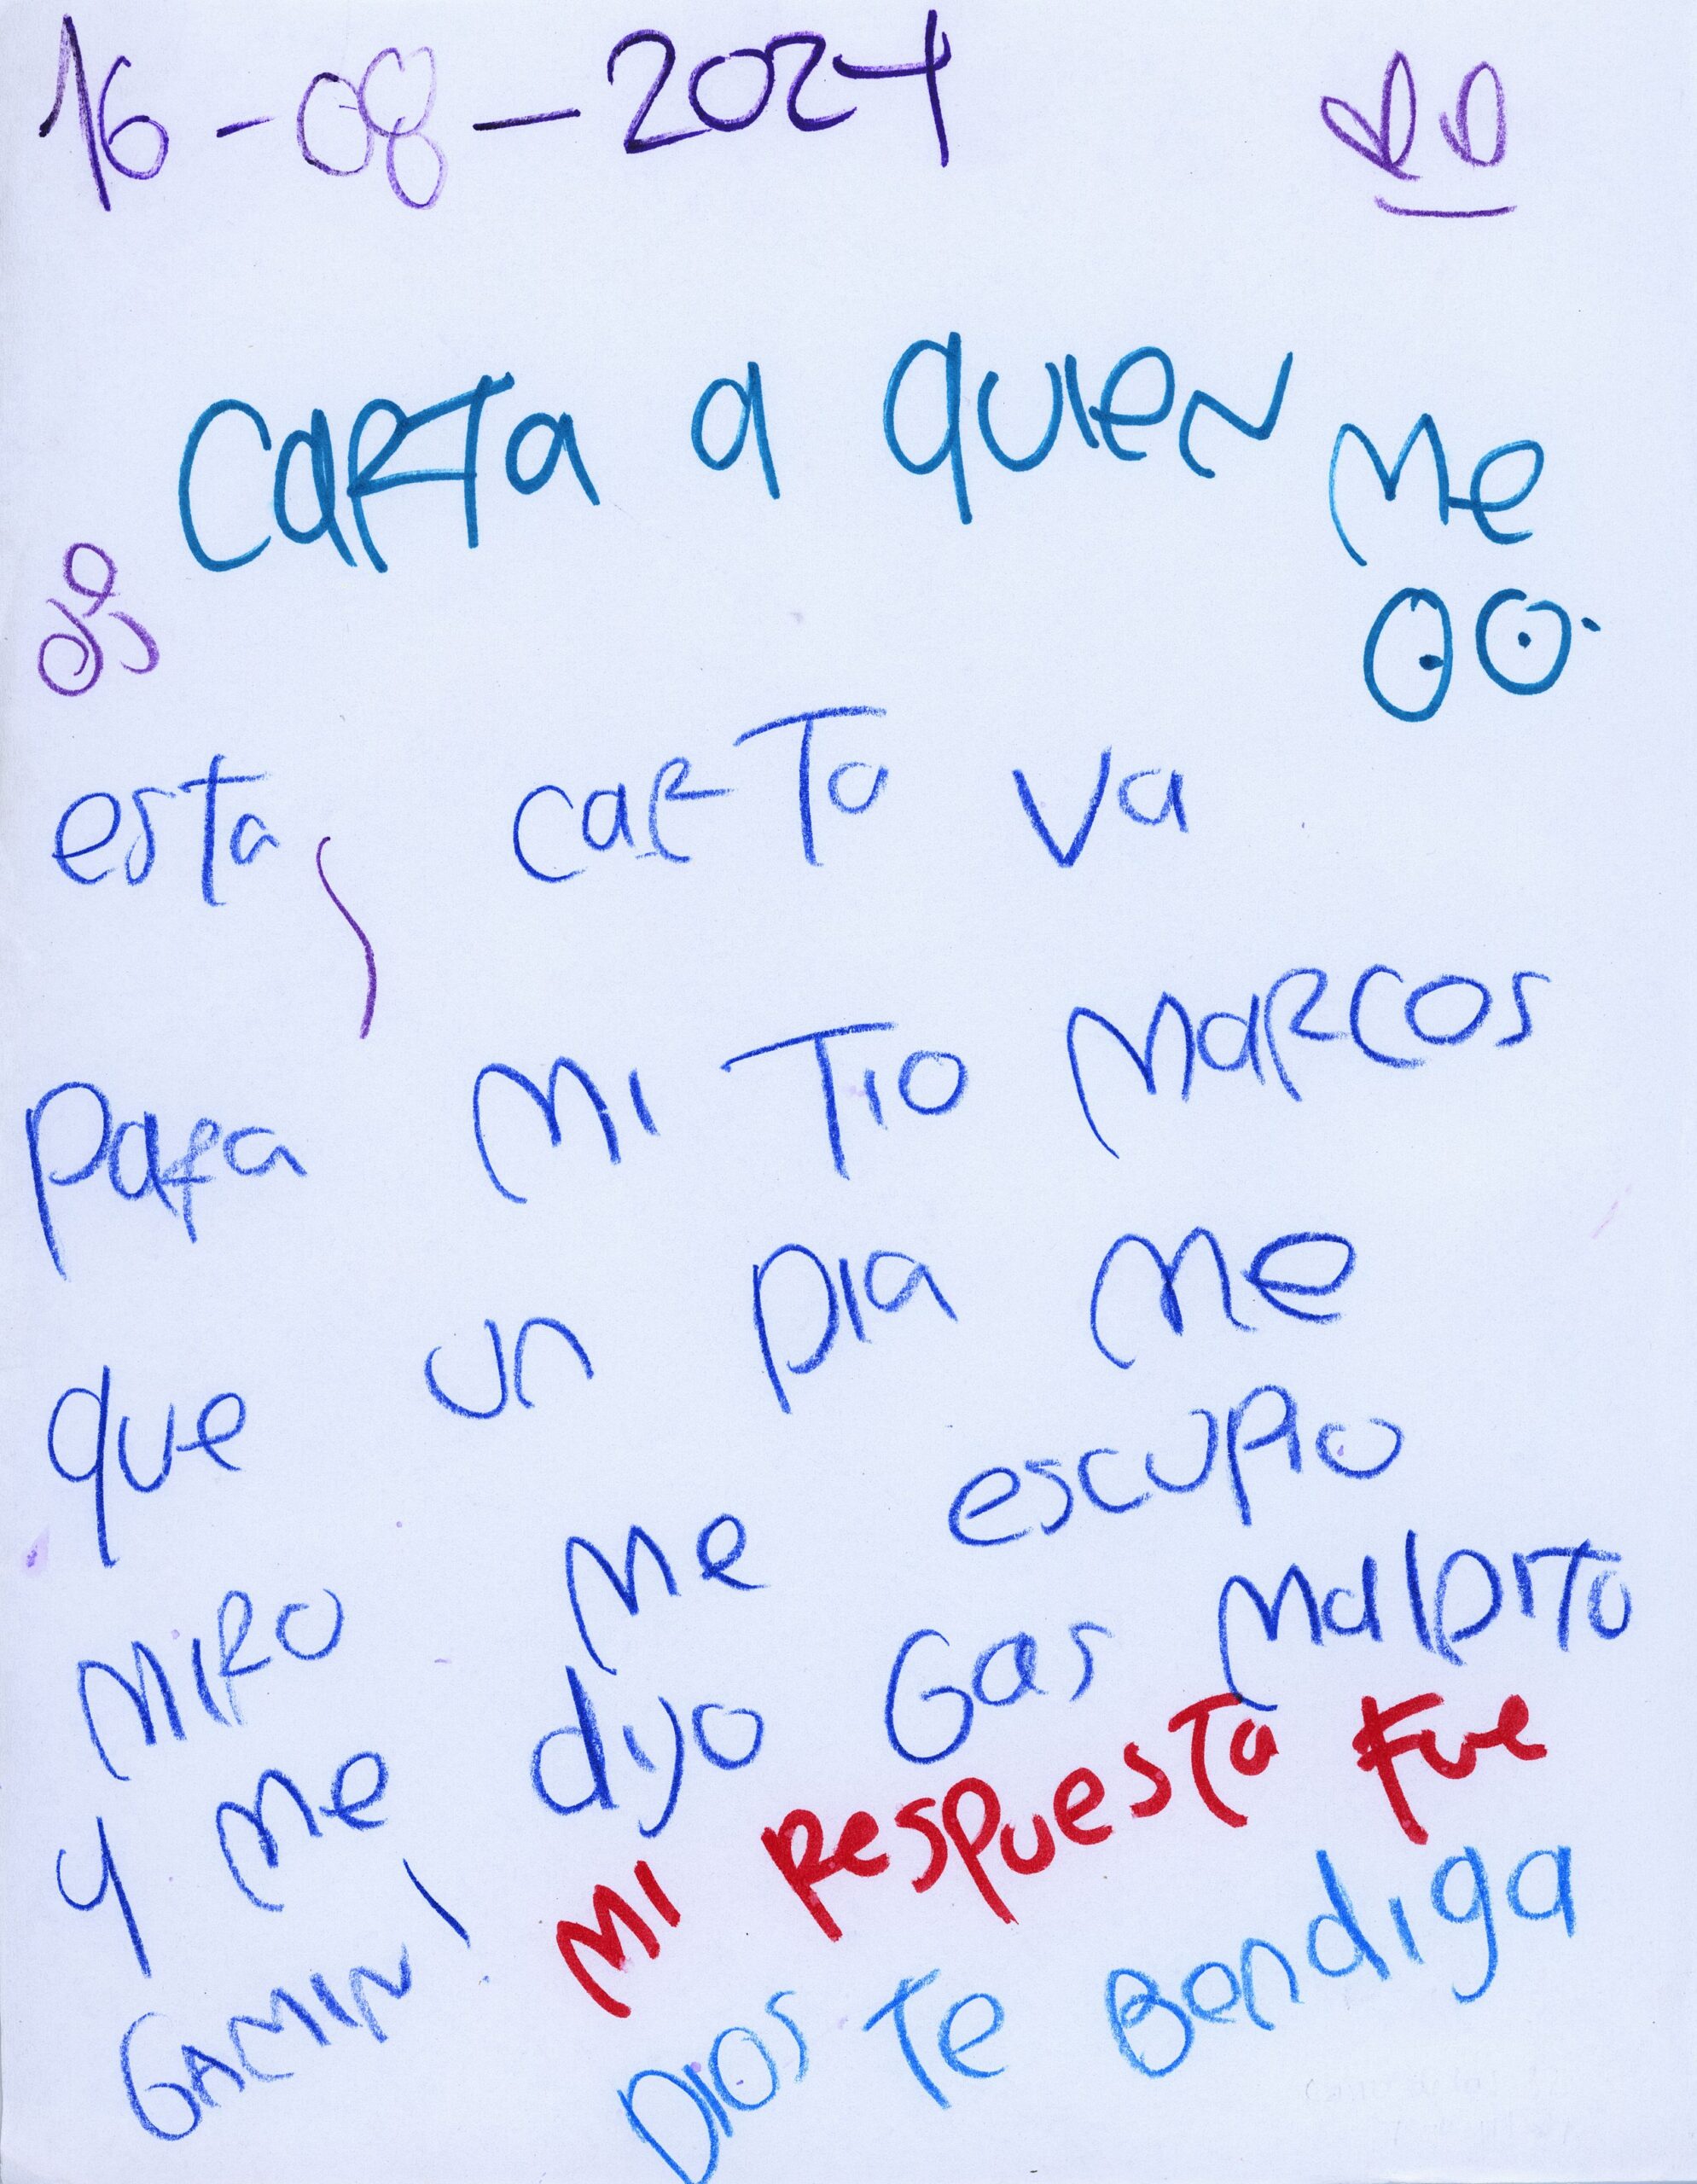 16-08-2024
Carta a quien me
esta carta va
para mi tio marcos
que un dia me
miro me escupio
y me dijo Gas maldito
GAMIN!
mi respuesta fue
Dios Te Bendiga